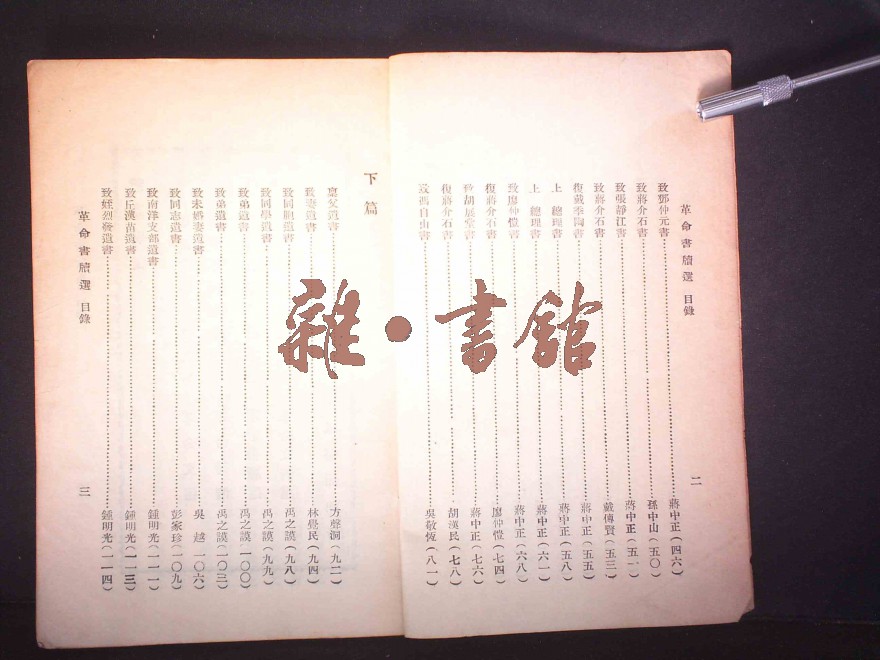 革命書牘選 目錄
二
致鄧仲元書……蔣中正(四六)
致蔣介石書……孫中山(五〇)
致張靜江書……蔣中正(五一)
致蔣介石書……戴傳賢(五三)
復戴季陶書……蔣中正(五五)
上 總理書……蔣中正(五八)
上 總理書……蔣中正(六一)
致廖仲愷書……蔣中正(六八)
復蔣介石書……廖仲愷(七四)
致胡展堂書……蔣中正(七六)
復蔣介石書……胡漢民(七八)
致馮自由書……吳敬恆(八一)
下篇
稟父遺書……方聲洞(九二)
致妻遺書……林覺民(九四)
致同胞遺書……禹之謨(九八)
致同學遺書……禹之謨(九九)
致弟遺書……禹之謨(一〇〇)
致弟遺書……禹之謨(一〇三)
致未婚妻遺書……吳 越(一〇六)
致同志遺書……彭家珍(一〇九)
致南洋支部遺書……鍾明光(一一一)
致丘漢苗遺書……鍾明光(一一三)
致姪烈發遺書……鍾明光(一一四)
革命書牘選 目錄
三
雜·書館